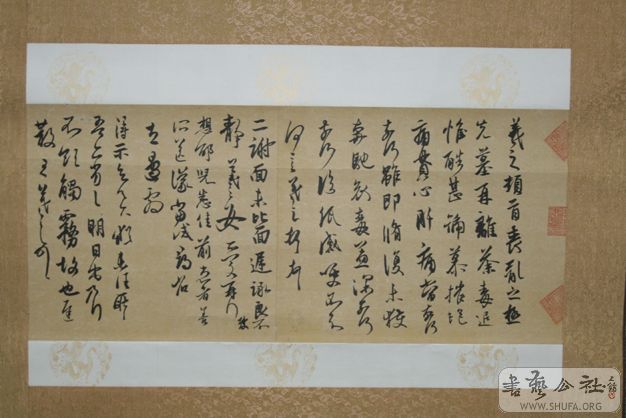 羲之頓首喪亂之極
先墓再離荼毒追
惟酷甚號慕摧絕
痛貫心肝痛當奈何
奈何雖即脩復未獲
奔馳哀毒益深奈何
奈何臨紙感哽不知
何言羲之頓首
二謝面未比面遲詠良不
靜羲之女愛再拜
想邵兒悉佳前患者善
所送議當
左邊劇
得示知足下猶未佳耿
吾亦劣明日出乃行
不欲觸霧故也遲
散王羲之頓首
書藝公社
WWW.SHUFA.ORG